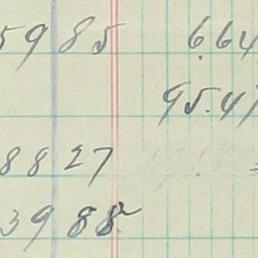 5985 6.64
95.47
8827
3988